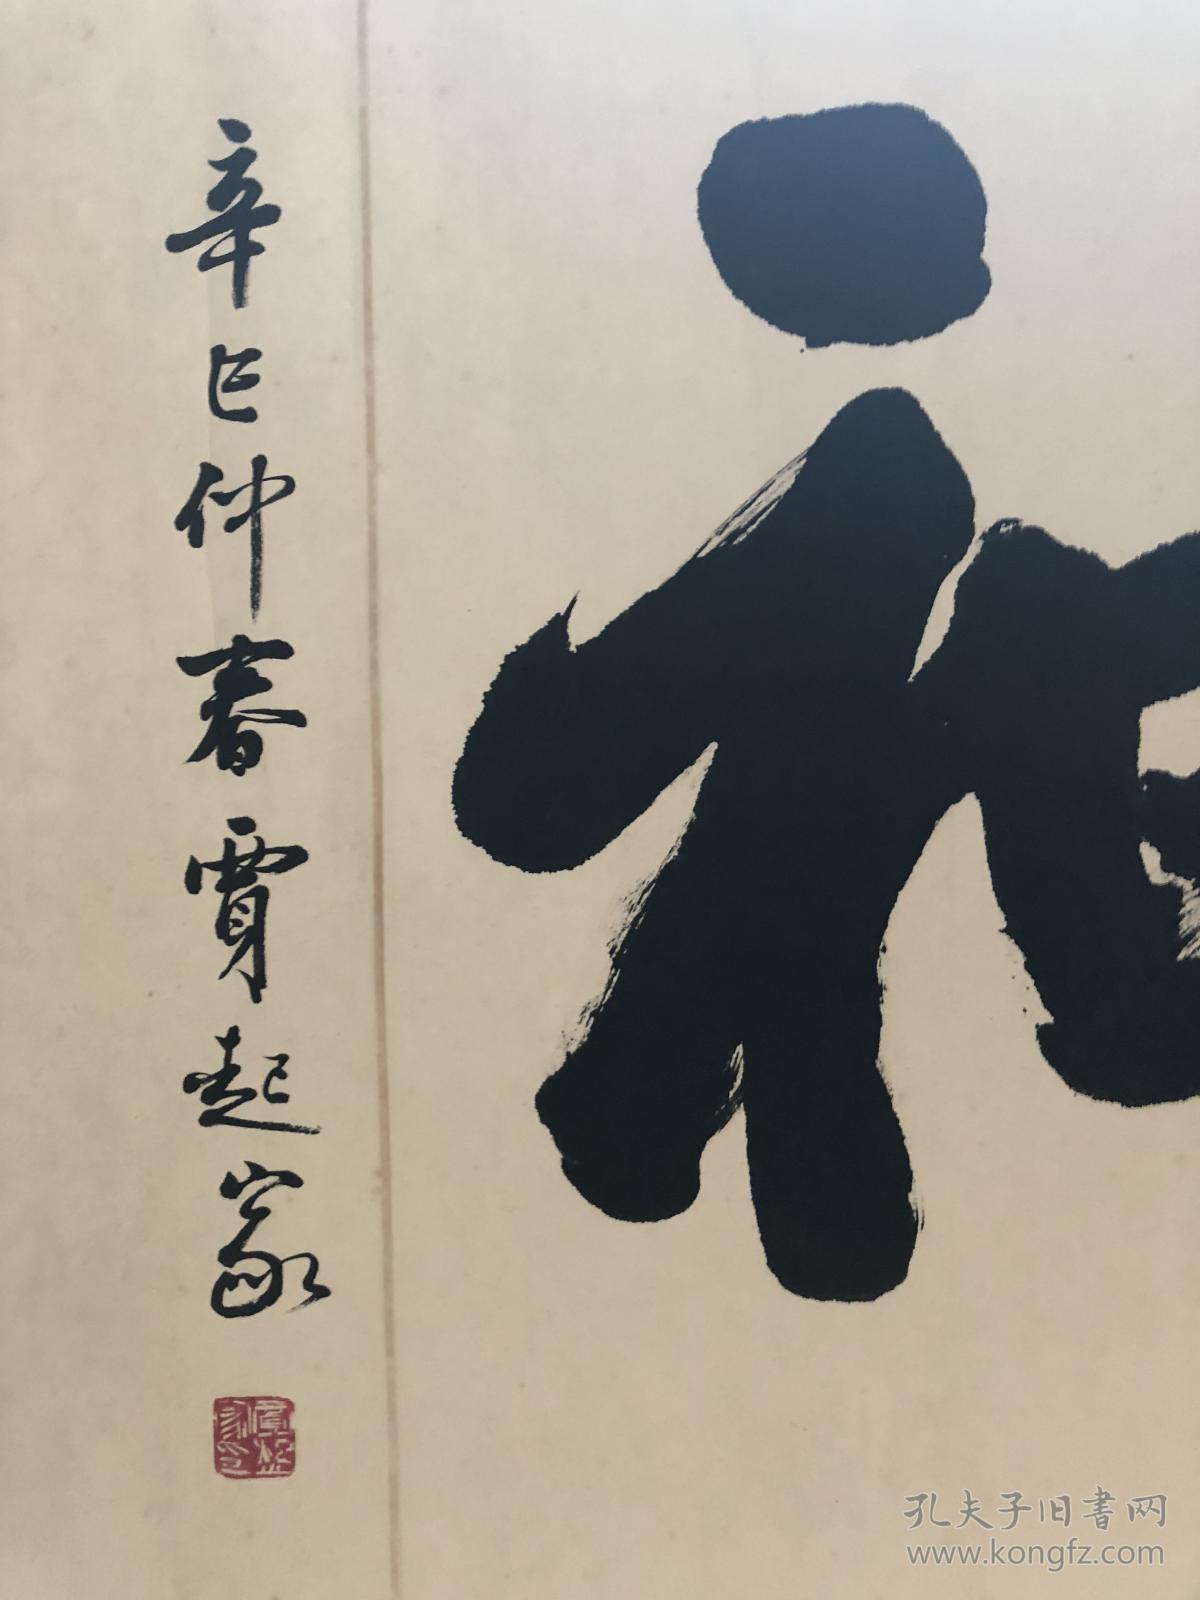 辛巳仲春賈起家
孔夫子旧書网
www.kongfz.com